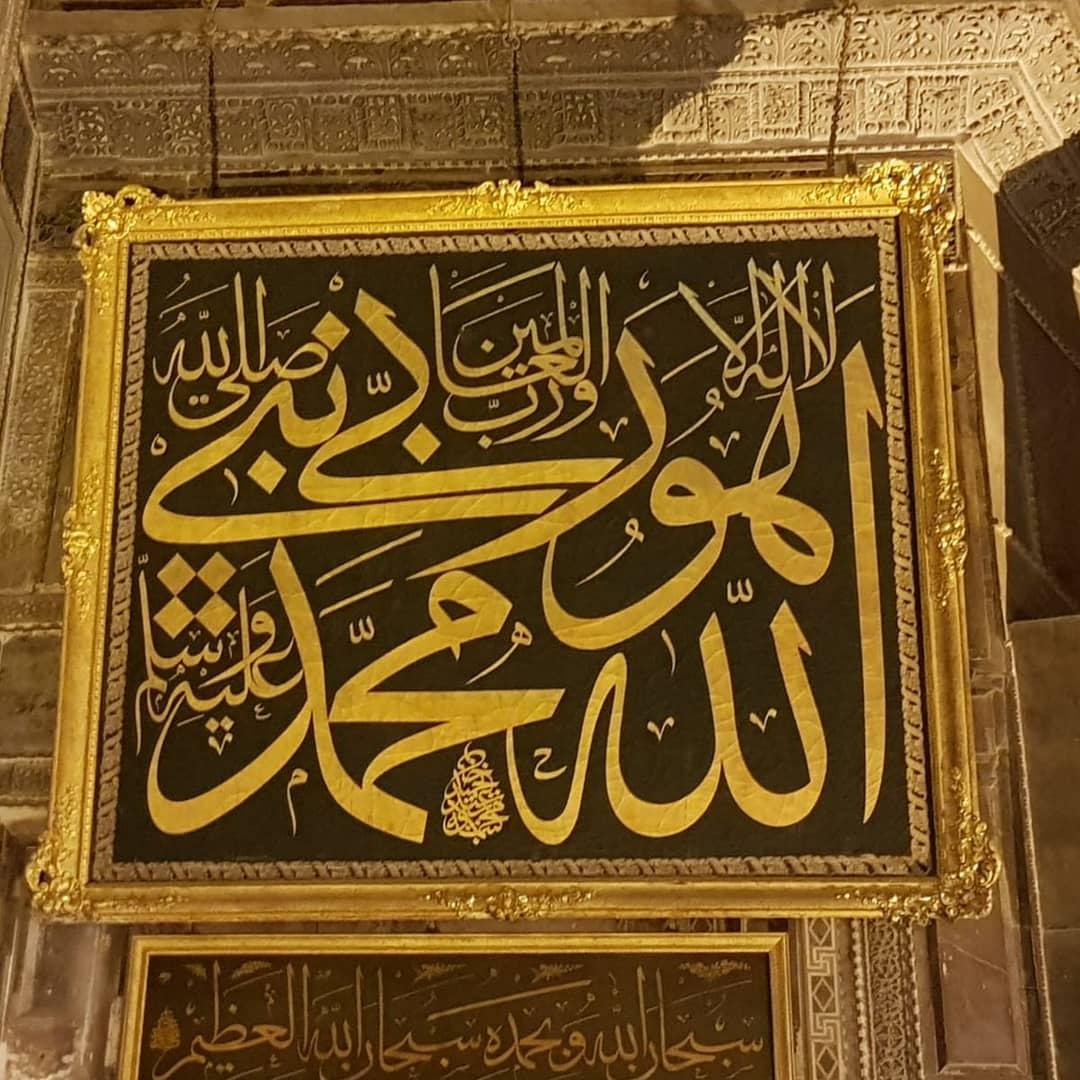 الله ربي
لا اله الا هو
ورب العالمين
محمد نبيي
صلى الله
عليه وسلم
سبحان الله وبحمده سبحان الله العظيم